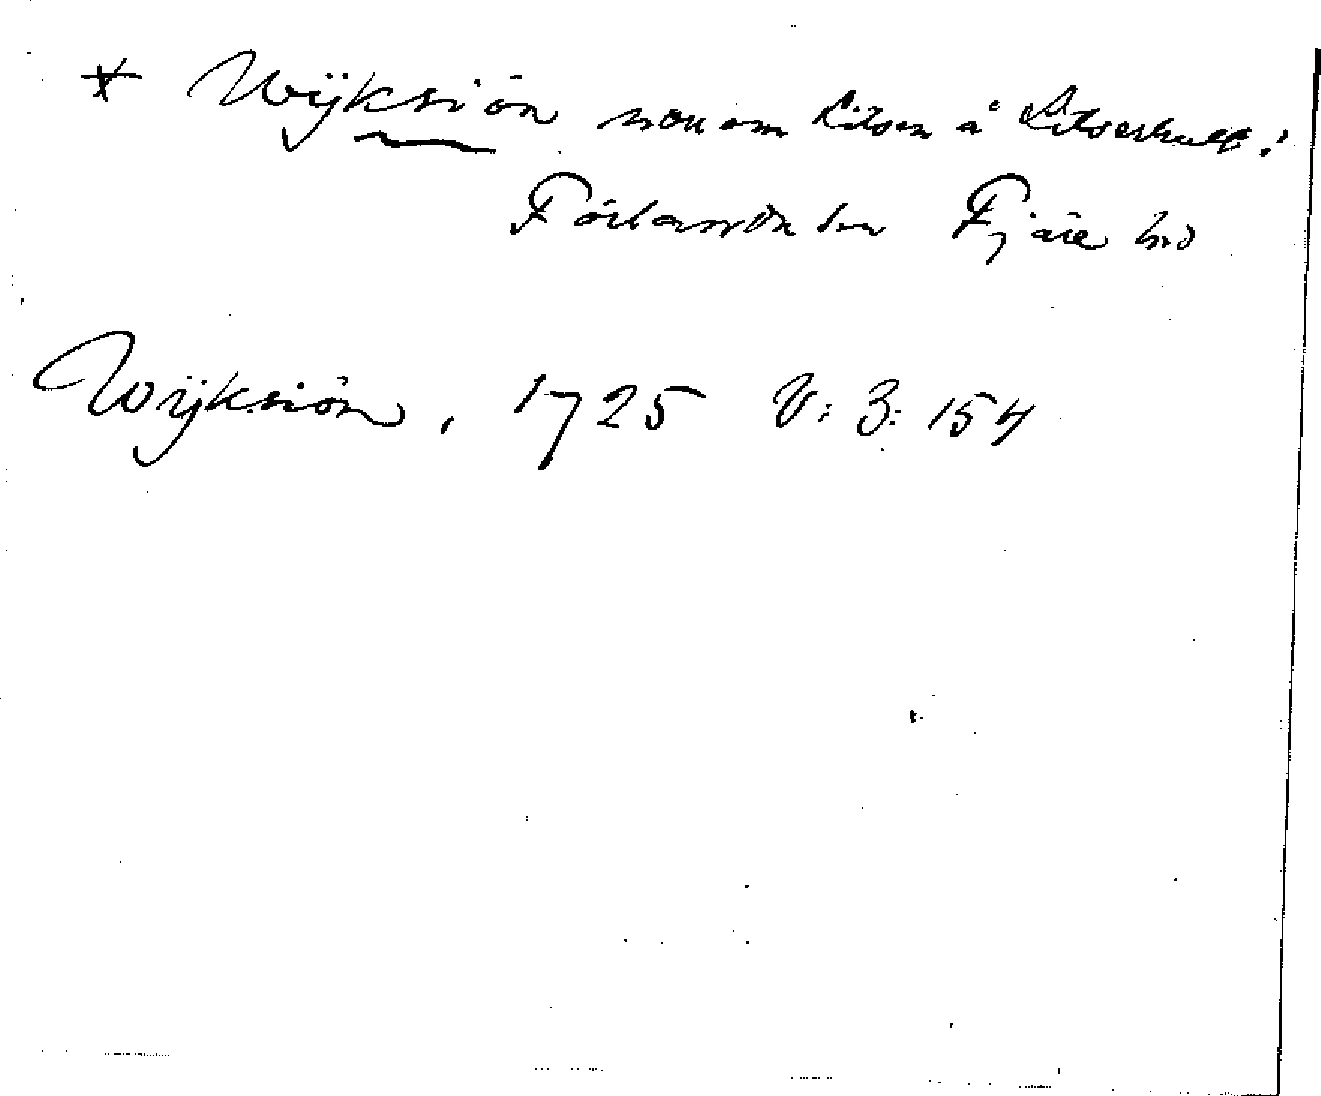 * Wijksiön norr om Litsen å Litserhult i
Förlanda sn Fjäre hd
Wijksiön, 1725 V: 3: 154